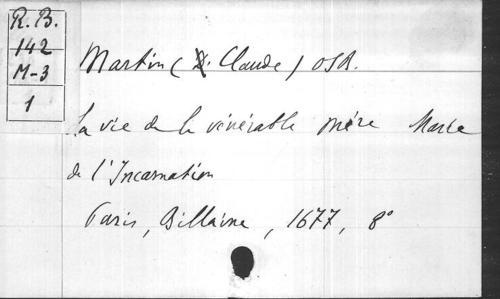 R. B.
142
M-3
1
Martin (D. Claude) OSB.
La vie de la vénérable mère Marie
de l'Incarnation
Paris, Billaine, 1677, 8°